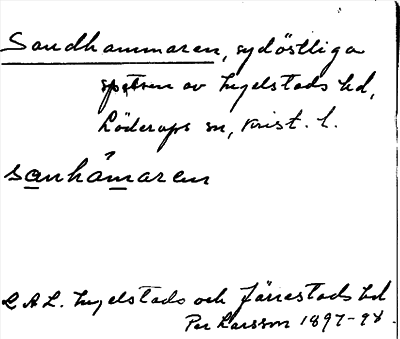 Sandhammaren, sydöstliga
spetsen av Ingelstads hd,
Löderups sn, Krist. l.
sanhåmaren
L A L. Ingelstads och Järrestads hd
Per Larsson 1897-98.